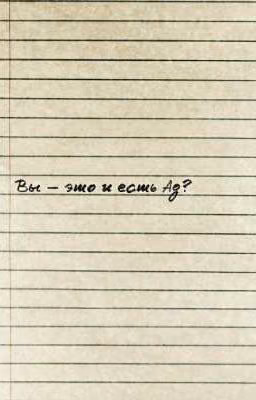 Вы — это и есть Ад?